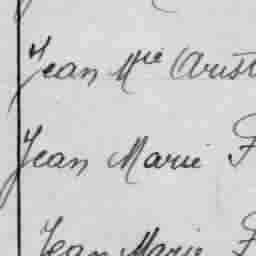 Jean Mie Arist
Jean Marie F
Jean Marie F